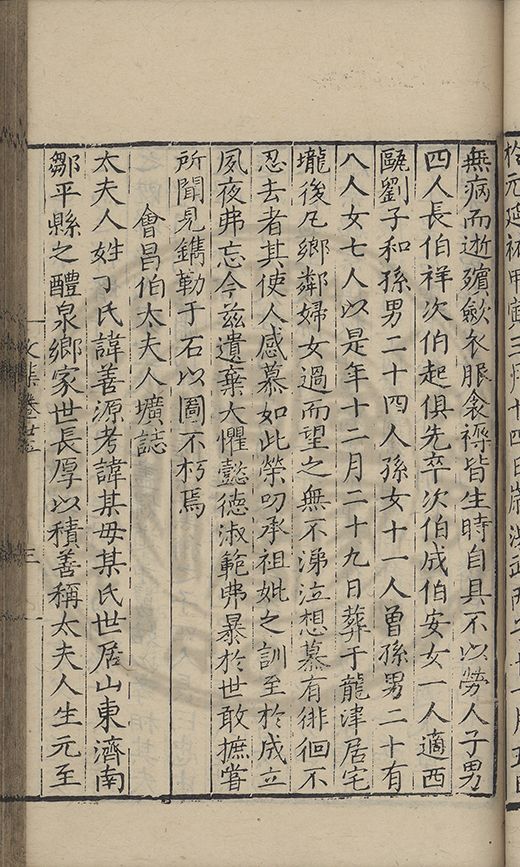 無病而逝殯斂衣服衾襚皆生時自具不以勞人子男
四人長伯祥次伯起俱先卒次伯成伯安女一人適西
甌劉子和孫男二十四人孫女十一人曾孫男二十有
八人女七人以是年十二月二十九日葬于龍津居宅
壠後凡鄉鄰婦女過而望之無不涕泣想慕有徘徊不
忍去者其使人感慕如此榮叨承祖妣之訓至於成立
夙夜弗忘今茲遺棄大懼懿德淑範弗暴於世敢摭嘗
所聞見鐫勒于石以圖不朽焉
會昌伯太夫人壙誌
太夫人姓丁氏諱善源考諱某母某氏世居山東濟南
鄒平縣之醴泉鄉家世長厚以積善稱太夫人生元至
文集 三